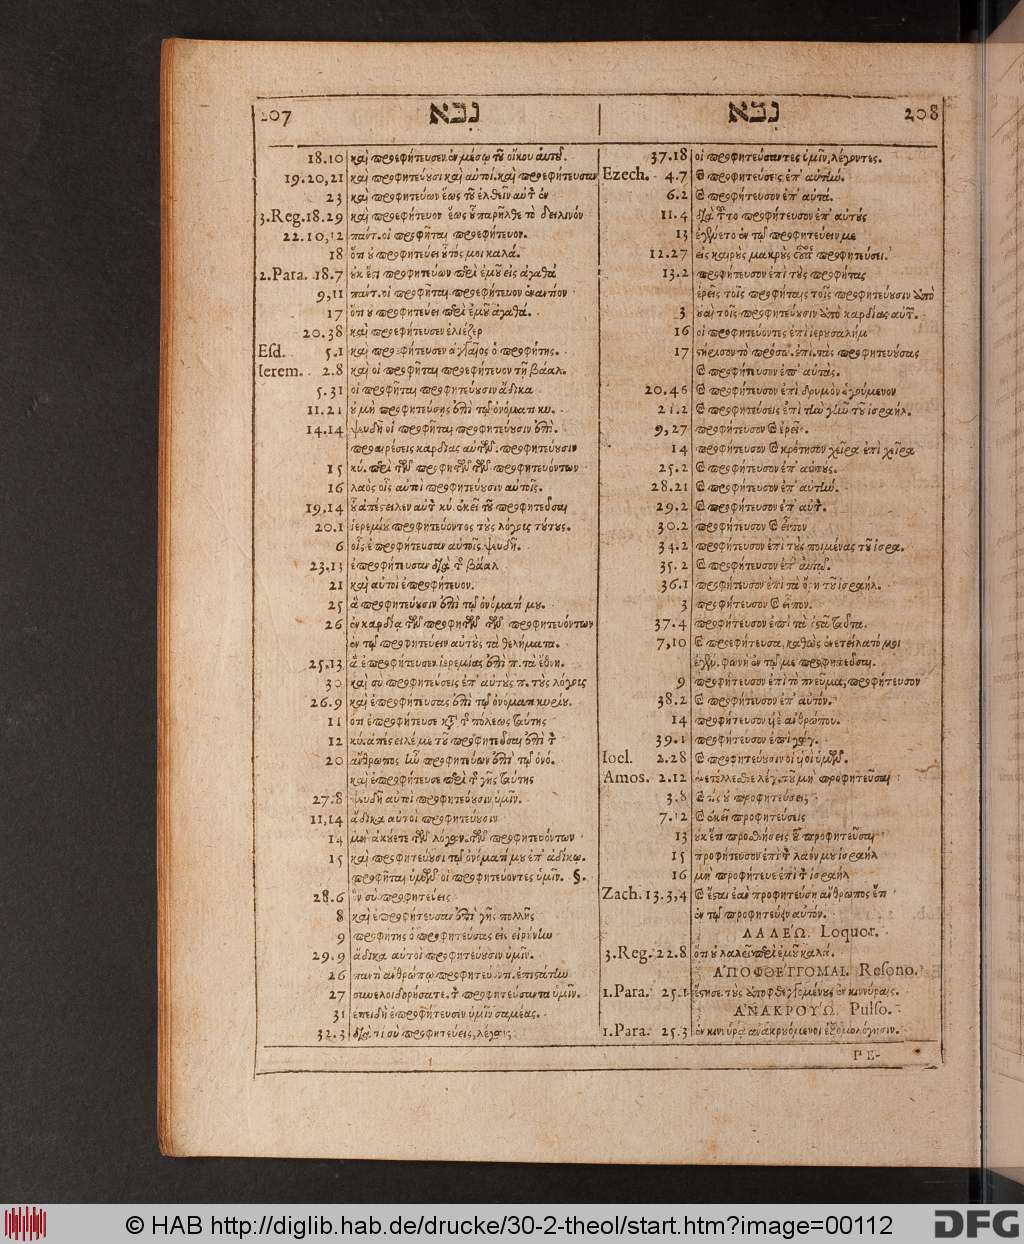 207 נבא
18.10 καὶ προεφήτευσεν ἐν μέσῳ τοῦ οἴκου αὐτοῦ.
19.20,21 καὶ προφητεύουσι καὶ αὐτοί. καὶ προεφήτευσαν
23 καὶ προφητεύων ἕως τοῦ ἐλθεῖν αὐτὸν ἐν
3.Reg.18.29 καὶ προεφήτευον ἕως οὗ παρῆλθε τὸ δειλινόν
22.10,12 πάντ. οἱ προφῆται προεφήτευον.
18 ὅτι οὐ προφητεύει οὗτός μοι καλά.
2.Para. 18.7 οὐκ ἔτι προφητεύων περὶ ἐμοῦ εἰς ἀγαθά
9,11 πάντ. οἱ προφῆται προεφήτευον ἐναντίον
17 ὅτι οὐ προφητεύει περὶ ἐμοῦ ἀγαθά.
20.38 καὶ προεφήτευσεν ἐλιέζερ
Esd. 5.1 καὶ προεφήτευσεν ἀγγαῖος ὁ προφήτης.
Ierem. 2.8 καὶ οἱ προφῆται προεφήτευον τῇ βάαλ.
5.31 οἱ προφῆται προφητεύουσιν ἄδικα
11.21 οὐ μὴ προφητεύσῃς ἐπὶ τῷ ὀνόματι κυ.
14.14 ψευδῆ οἱ προφῆται προφητεύουσιν ἐπὶ.
προαιρέσεις καρδίας αὐτῶν. προφητεύουσιν
15 κύ. περὶ τῶν προφητῶν τῶν προφητευόντων
16 λαὸς οἷς αὐτοὶ προφητεύουσιν αὐτοῖς.
19,14 οὗ ἀπέστειλεν αὐτὸν κύ. ἐκεῖ τοῦ προφητεῦσαι
20.1 ἱερεμίου προφητεύοντος τοὺς λόγους τούτους.
6 οἷς ἐπροφήτευσαν αὐτοῖς ψευδῆ.
23.13 ἐπροφήτευσαν διὰ τῆς βάαλ
21 καὶ αὐτοὶ ἐπροφήτευον.
25 ἃ προφητεύουσιν ἐπὶ τῷ ὀνόματί μου.
26 ἐν καρδίᾳ τῶν προφητῶν τῶν προφητευόντων
ἐν τῷ προφητεύειν αὐτοὺς τὰ θελήματα.
25.13 ἃ ἐπροφήτευσεν ἱερεμίας ἐπὶ π. τὰ ἔθνη.
30 καὶ σὺ προφητεύσεις ἐπ' αὐτοὺς π. τοὺς λόγους
26.9 καὶ ἐπροφήτευσας ἐπὶ τῷ ὀνόματι κυρίου.
11 ὅτι ἐπροφήτευσε κατὰ τῆς πόλεως ταύτης
12 κύ. ἀπέστειλέ με τοῦ προφητεῦσαι ἐπὶ τὸν
20 ἄνθρωπος ἦν προφητεύων ἐπὶ τῷ ὀνό.
καὶ ἐπροφήτευσε περὶ τῆς γῆς ταύτης
27.8 ψευδῆ αὐτοὶ προφητεύουσιν ὑμῖν.
11,14 ἄδικα αὐτοὶ προφητεύουσιν
14 μὴ ἀκούετε τῶν λόγων. τῶν προφητευόντων
15 καὶ προφητεύουσι τῷ ὀνόματί μου ἐπ' ἀδίκῳ.
προφῆται ὑμῶν οἱ προφητεύοντες ὑμῖν. §.
28.6 ὃν σὺ προφητεύεις
8 καὶ ἐπροφήτευσαν ἐπὶ γῆς πολλῆς
9 προφήτης ὁ προφητεύσας εἰς εἰρήνην
29.9 ἄδικα αὐτοὶ προφητεύουσιν ὑμῖν.
26 παντὶ ἀνθρώπῳ προφητεύοντι. ἐπιστάτην
27 συνελοιδορήσατε. τὸν προφητεύσαντα ὑμῖν.
31 ἐπειδὴ ἐπροφήτευσεν ὑμῖν σαμέας.
32.3 διὰ τί σὺ προφητεύεις, λέγων;
נבא 208
37.18 οἱ προφητεύσαντες ὑμῖν, λέγοντες.
Ezech. 4.7 καὶ προφητεύσεις ἐπ' αὐτήν.
6.2 καὶ προφήτευσον ἐπ' αὐτά.
11.4 διὰ τοῦτο προφήτευσον ἐπ' αὐτούς
13 ἐγένετο ἐν τῷ προφητεύειν με
12.27 εἰς καιροὺς μακροὺς οὗτος προφητεύσει.
13.2 προφήτευσον ἐπὶ τοὺς προφήτας
ἐρεῖς τοῖς προφήταις τοῖς προφητεύουσιν ἀπὸ
3 οὐαὶ τοῖς προφητεύουσιν ἀπὸ καρδίας αὐτῶν.
16 οἱ προφητεύοντες ἐπὶ ἱερουσαλήμ
17 στήρισον τὸ πρόσω. ἐπὶ. τὰς προφητευούσας
καὶ προφήτευσον ἐπ' αὐτάς.
20.46 καὶ προφήτευσον ἐπὶ δρυμὸν ἡγούμενον
21.2 καὶ προφητεύσεις ἐπὶ τὴν γῆν τοῦ ἰσραήλ.
9,27 προφήτευσον καὶ ἐρεῖς.
14 προφήτευσον καὶ κρότησον χεῖρα ἐπὶ χεῖρα
25.2 καὶ προφήτευσον ἐπ' αὐτούς.
28.21 καὶ προφήτευσον ἐπ' αὐτήν.
29.2 καὶ προφήτευσον ἐπ' αὐτόν.
30.2 προφήτευσον καὶ εἶπον
34.2 προφήτευσον ἐπὶ τοὺς ποιμένας τοῦ ἰσρα.
35.2 καὶ προφήτευσον ἐπ' αὐτῷ.
36.1 προφήτευσον ἐπὶ τὰ ὄρη τοῦ ἰσραήλ.
3 προφήτευσον καὶ εἶπον.
37.4 προφήτευσον ἐπὶ τὰ ὀστᾶ ταῦτα.
7,10 καὶ προεφήτευσα, καθὼς ἐνετείλατό μοι
ἐγένε. φωνὴ ἐν τῷ με προφητεῦσαι.
9 προφήτευσον ἐπὶ τὸ πνεῦμα, προφήτευσον
38.2 καὶ προφήτευσον ἐπ' αὐτόν.
14 προφήτευσον υἱὲ ἀνθρώπου.
39.1 προφήτευσον ἐπὶ γώγ.
Ioel. 2.28 καὶ προφητεύσουσιν οἱ υἱοὶ ὑμῶν.
Amos. 2.12 ἐνετέλλεσθε λέγ. τοῦ μὴ προφητεῦσαι
3.8 καὶ τίς οὐ προφητεύσεις
7.12 καὶ ἐκεῖ προφητεύσεις
13 οὐκ ἔτι προσθήσεις τοῦ προφητεῦσαι
15 προφήτευσον ἐπὶ τὸν λαόν μου ἰσραήλ
16 μὴ προφήτευε ἐπὶ τὸν ἰσραήλ
Zach. 13.3,4 καὶ ἔσται ἐὰν προφητεύσῃ ἄνθρωπος ἔτι
ἐν τῷ προφητεύειν αὐτόν.
ΛΑΛΕΏ. Loquor.
3.Reg. 22.8 ὅτι οὐ λαλεῖ περὶ ἐμοῦ καλά.
ἈΠΟΦΘΕΓΓΟΜΑΙ. Resono.
1.Para. 25.1 ἔστησε. τοὺς ἀποφθεγγομένους ἐν κινύραις.
ἈΝΑΚΡΟΥΏ. Pulso.
1.Para. 25.3 ἐν κινύρᾳ ἀνακρουόμενοι ἐξομολόγησιν.
ΡΕ-
© HAB http://diglib.hab.de/drucke/30-2-theol/start.htm?image=00112
DFG